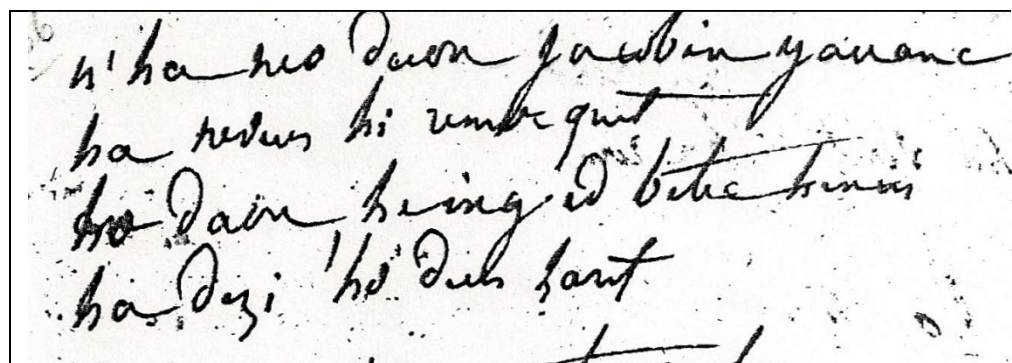 n'ha neo daou jacobin yaouanc
ha neus hi remerquet
ho daou heing id betec hennis
ha dezi 'ho deus laret